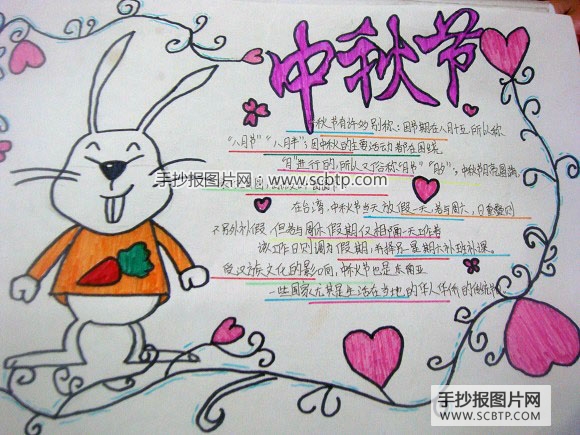 中秋节
中秋节有许多别称：因节期在八月十五，所以称
“八月节”“八月半”；因中秋的主要活动都在围绕
“月”进行的，所以又俗称“月节”“月夕”；中秋节月亮圆满，
手抄报图片网：www.scbtp.com
在台湾，中秋节当天放假一天，若与周六、日重叠则
不另外补假，但若与周休假期仅相隔一天工作者
该工作日则调为假期，再择另星期六补班补课。
受汉族文化的影响，中秋节也是东南亚
一些国家尤其是生活在当地的华人华侨的传统
手抄报图片网
WWW.SCBTP.COM